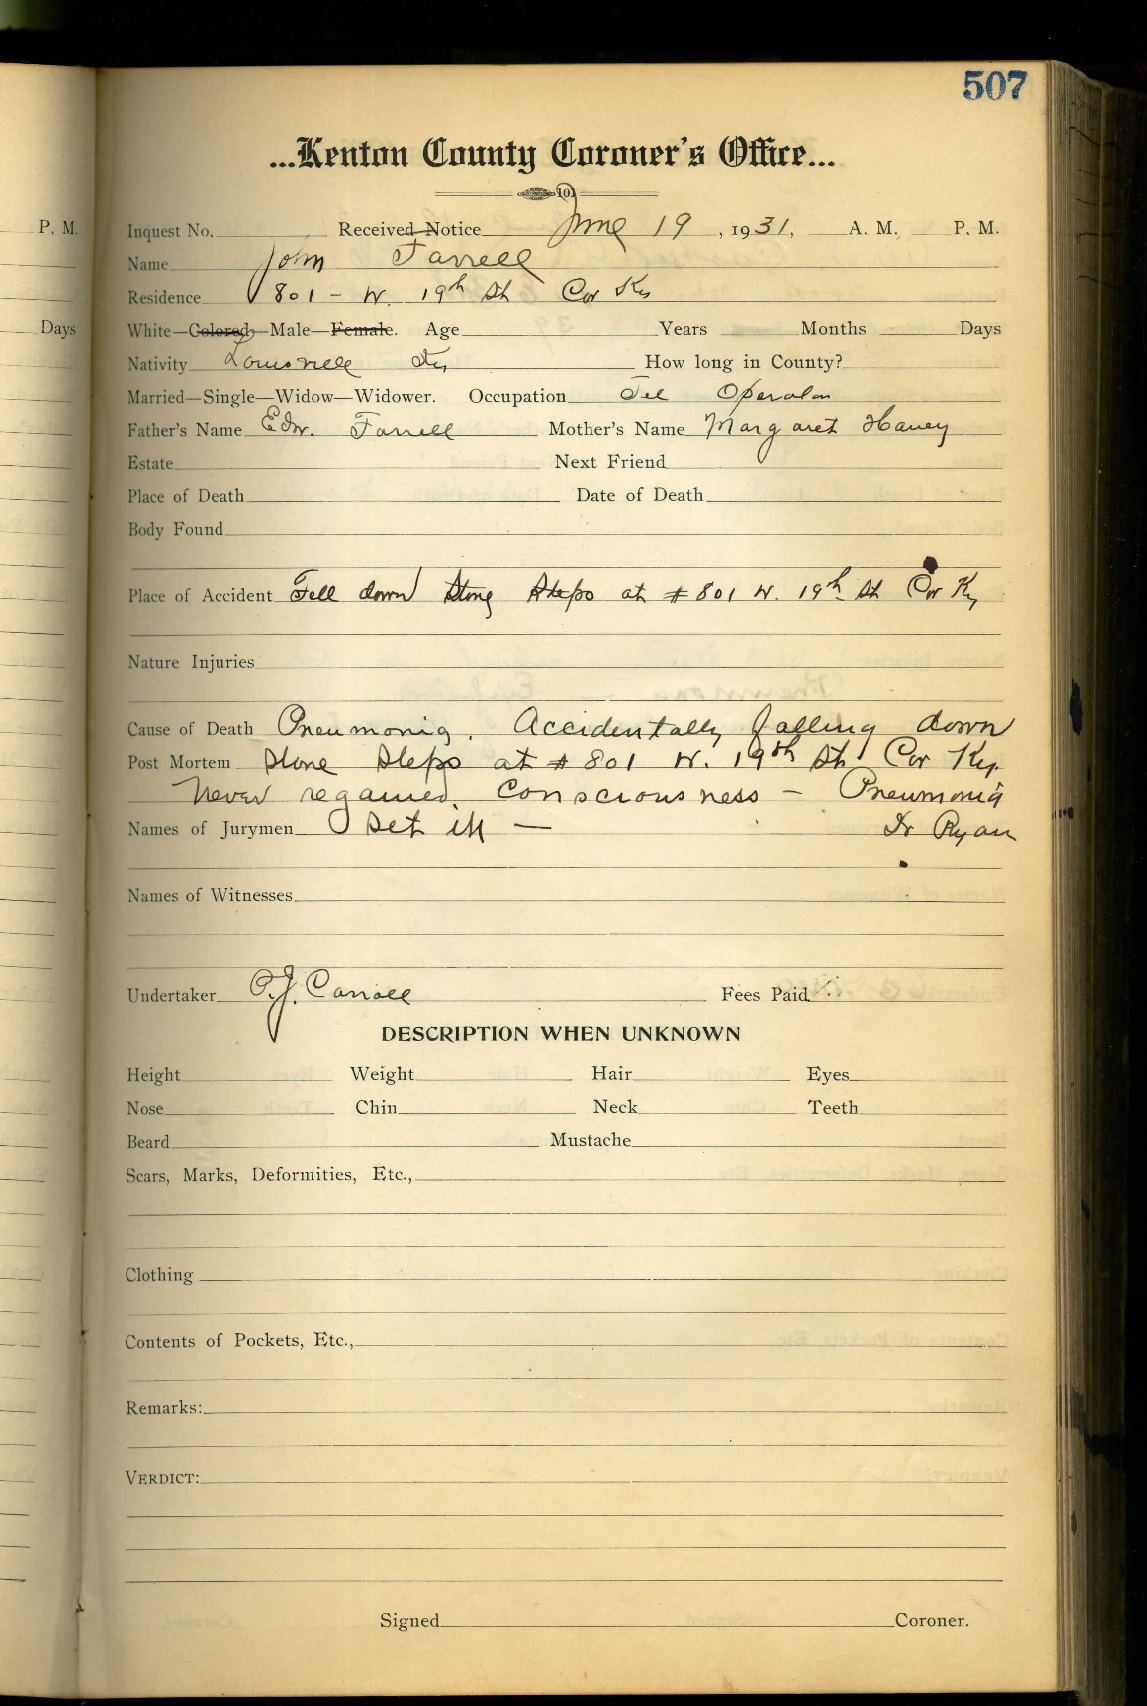 507
...Kenton County Coroner's Office...
101
P. M.
Inquest No. Received Notice June 19, 1931, A. M. P. M.
Name John Farrell
Residence 801 - W. 19th St Cov Ky
Days
White—Colored—Male—Female. Age Years Months Days
Nativity Louisville Ky How long in County?
Married—Single—Widow—Widower. Occupation Tel Operator
Father's Name Edw. Farrell Mother's Name Margaret Haney
Estate Next Friend
Place of Death Date of Death
Body Found
Place of Accident Fell down Stone Steps at #801 W. 19th St Cov Ky
Nature Injuries
Cause of Death Pneumonia. Accidentally falling down
Post Mortem Stone Steps at #801 W. 19th St Cov Ky.
Never regained Consciousness - Pneumonia
Names of Jurymen set in — Dr Ryan
Names of Witnesses
Undertaker P. J. Carroll Fees Paid
DESCRIPTION WHEN UNKNOWN
Height Weight Hair Eyes
Nose Chin Neck Teeth
Beard Mustache
Scars, Marks, Deformities, Etc.,
Clothing
Contents of Pockets, Etc.,
Remarks:
VERDICT:
Signed Coroner.